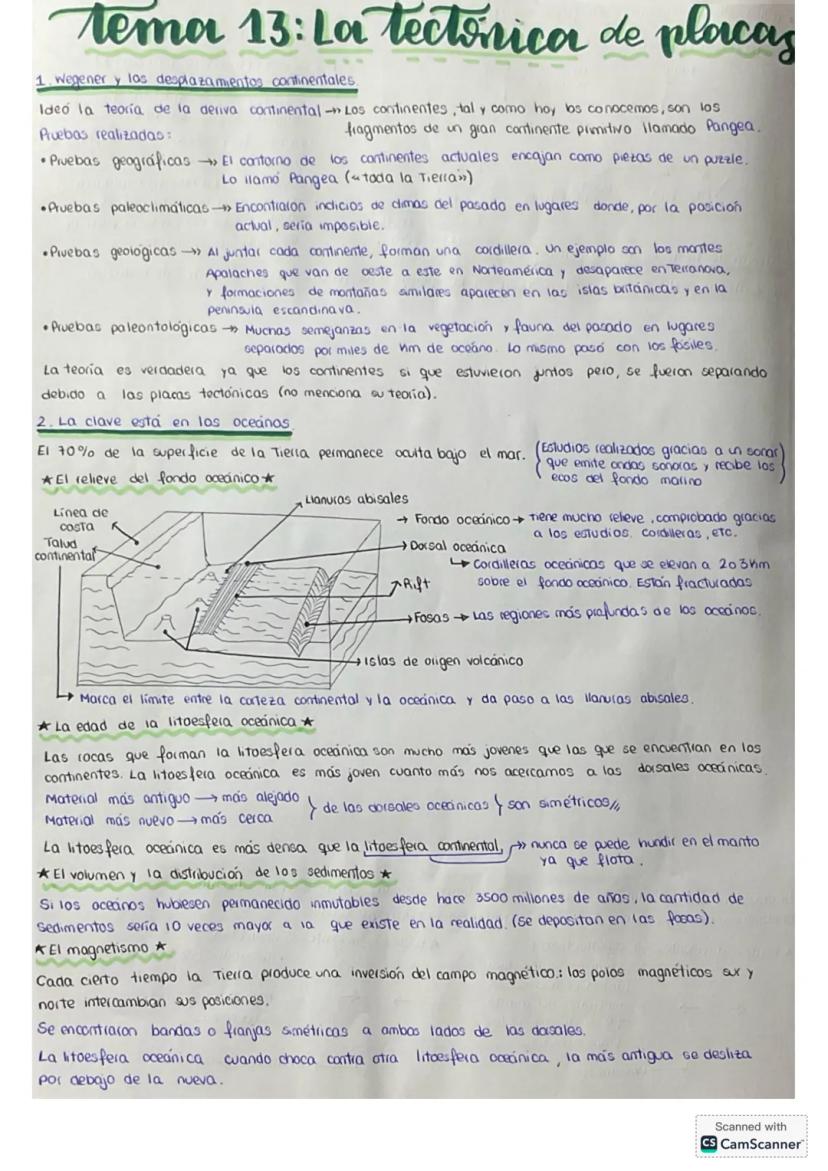 Tema 13: La Tectónica de placas
1. Wegener y los desplazamientos continentales.
Ideó la teoría de la deriva continental →» Los continentes, tal y como hoy los conocemos, son los
fragmentos de un gran continente primitivo llamado Pangea.
Pruebas realizadas:
• Pruebas geográficas →» El contorno de los continentes actuales encajan como piezas de un puzzle.
Lo llamó Pangea («toda la Tierra»)
• Pruebas paleoclimáticas →» Encontraron indicios de climas del pasado en lugares donde, por la posición
actual, sería imposible.
• Pruebas geológicas →» Al juntar cada continente, forman una cordillera. Un ejemplo son los montes
Apalaches que van de oeste a este en Norteamérica y desaparece en Terranova,
y formaciones de montañas similares aparecen en las islas británicas y en la
península escandinava.
• Pruebas paleontológicas →» Muchas semejanzas en la vegetación y fauna del pasado en lugares
separados por miles de km de océano. Lo mismo pasó con los fósiles.
La teoría es verdadera ya que los continentes si que estuvieron juntos pero, se fueron separando
debido a las placas tectónicas (no menciona su teoría).
2. La clave está en los océanos.
El 70% de la superficie de la Tierra permanece oculta bajo el mar. (Estudios realizados gracias a un sonar
que emite ondas sonoras y recibe los
ecos del fondo marino)
★ El relieve del fondo oceánico ★
Llanuras abisales
Línea de
costa
Talud
continental
→ Fondo oceánico → Tiene mucho relieve, comprobado gracias
a los estudios. Cordilleras, etc.
→ Dorsal oceánica
↳ Cordilleras oceánicas que se elevan a 2 o 3 km
sobre el fondo oceánico. Están fracturadas
Rift
→ Fosas → Las regiones más profundas de los océanos.
→ Islas de origen volcánico
↳ Marca el límite entre la corteza continental y la oceánica y da paso a las llanuras abisales.
★ La edad de la litoesfera oceánica ★
Las rocas que forman la litoesfera oceánica son mucho más jovenes que las que se encuentran en los
continentes. La litoesfera oceánica es más joven cuanto más nos acercamos a las dorsales oceánicas.
Material más antiguo → más alejado
Material más nuevo → más cerca
} de las dorsales oceánicas } son simétricos //
La litoesfera oceánica es más densa que la litoesfera continental, →» nunca se puede hundir en el manto
ya que flota.
★ El volumen y la distribución de los sedimentos ★
Si los océanos hubiesen permanecido inmutables desde hace 3500 millones de años, la cantidad de
sedimentos sería 10 veces mayor a la que existe en la realidad. (Se depositan en las fosas).
★ El magnetismo ★
Cada cierto tiempo la Tierra produce una inversión del campo magnético.: los polos magnéticos sur y
norte intercambian sus posiciones.
Se encontraron bandas o franjas simétricas a ambos lados de las dorsales.
La litoesfera oceánica cuando choca contra otra litoesfera oceánica, la más antigua se desliza
por debajo de la nueva.
Scanned with
CS CamScanner